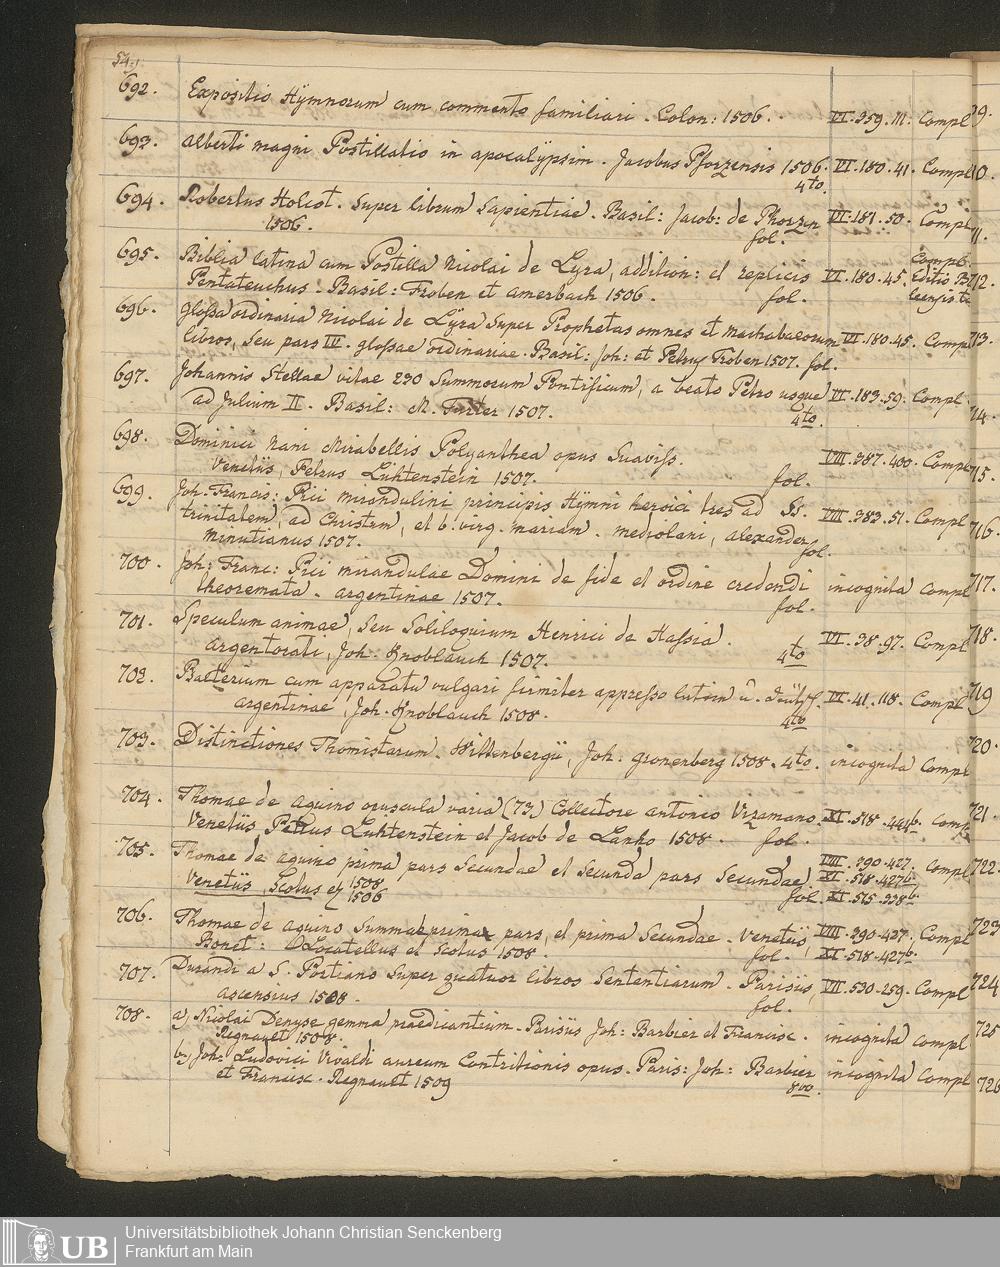 54.
692. Expositio Hÿmnorum cum commento familiari. Colon: 1506. VI. 359. 111. Compl
693. Alberti magni Postillatio in apocalÿpsim. Jacobus Pforzensis 1506. VI. 180. 41. Compl
4to.
694. Robertus Holcot. Super librum Sapientiae. Basil: Jacob: de Phorzen VI. 181. 50. Compl
1506. fol.
695. Biblia latina cum Postilla Nicolai de Lyra, addition: et replicis VI. 180. 45. Compl. Editio
Pentateuchus. Basil: Froben et Amerbach 1506. fol.
696. Glossa ordinaria Nicolai de Lÿra Super Prophetas omnes et Machabaeorum VI. 180. 45. Compl
libros, Seu pars III. glossae ordinariae. Basil: Joh: et Petrus Froben 1507. fol.
697. Johannis Stellae vitae 230 Summorum Pontificum, a beato Petro usque VI. 183. 59. Compl
ad Julium II. Basil: M. Furter 1507. 4to.
698. Dominici Nani Mirabellis Polyanthea opus Suaviss. VIII. 387. 400. Compl
Venetiis, Petrus Lichtenstein 1507. fol.
699. Joh: Francis: Pici mirandulini principis Hÿmni heroici tres ad Ss. VIII. 383. 51. Compl
trinitatem, ad Christum, et b. virg. Mariam. Mediolani, Alexander
Minutianus 1507. fol.
700. Joh: Franc: Pici mirandulae Domini de fide et ordine credendi incognita Compl
theoremata. Argentinae 1507. fol.
701. Speculum animae, Seu Soliloquium Henrici de Hassia. VI. 38. 97. Compl
Argentorati, Joh. Knoblauch 1507. 4to
702. Bacterium cum apparatu vulgari firmiter appresso latein û. deütsch. VI. 41. 118. Compl
Argentinae, Joh. Knoblauch 1508. 4to
703. Distinctiones Thomistarum. Wittenbergii, Joh: Gronenberg 1508. 4to. incognita Compl
704. Thomae de Aquino opuscula varia (73) Collectore Antonio Vizamano. XI. 518. 444b. Compl
Venetiis, Petrus Lichtenstein et Jacob de Lanho 1508. fol.
705. Thomae de Aquino prima pars Secundae et Secunda pars Secundae VIII. 390. 427. Compl
XI. 518. 427b.
Venetiis, Scotus 1508 et 1506 fol. XI. 515. 338b.
706. Thomae de Aquino Summae prima pars, et prima Secundae. Venetiis, VIII. 390. 427. Compl
Bonet: Locatellus et Scotus 1508. fol. XI. 518. 427b.
707. Durandi a S. Portiano Super quatuor libros Sententiarum. Parisiis, VII. 530. 259. Compl
Ascensius 1508. fol.
708. a, Nicolai Denyse gemma praedicantium. Parisiis Joh: Barbier et Francisc. incognita Compl
Regnault 1508.
b, Joh: Ludovici Vivaldi aureum Contritionis opus. Paris: Joh: Barbier incognita Compl
et Francisc. Regnault 1509 8vo.
9.
10.
11.
712.
713.
714.
715.
716.
717.
718.
719
720.
721.
722.
723
724
725
726
UB Universitätsbibliothek Johann Christian Senckenberg
Frankfurt am Main